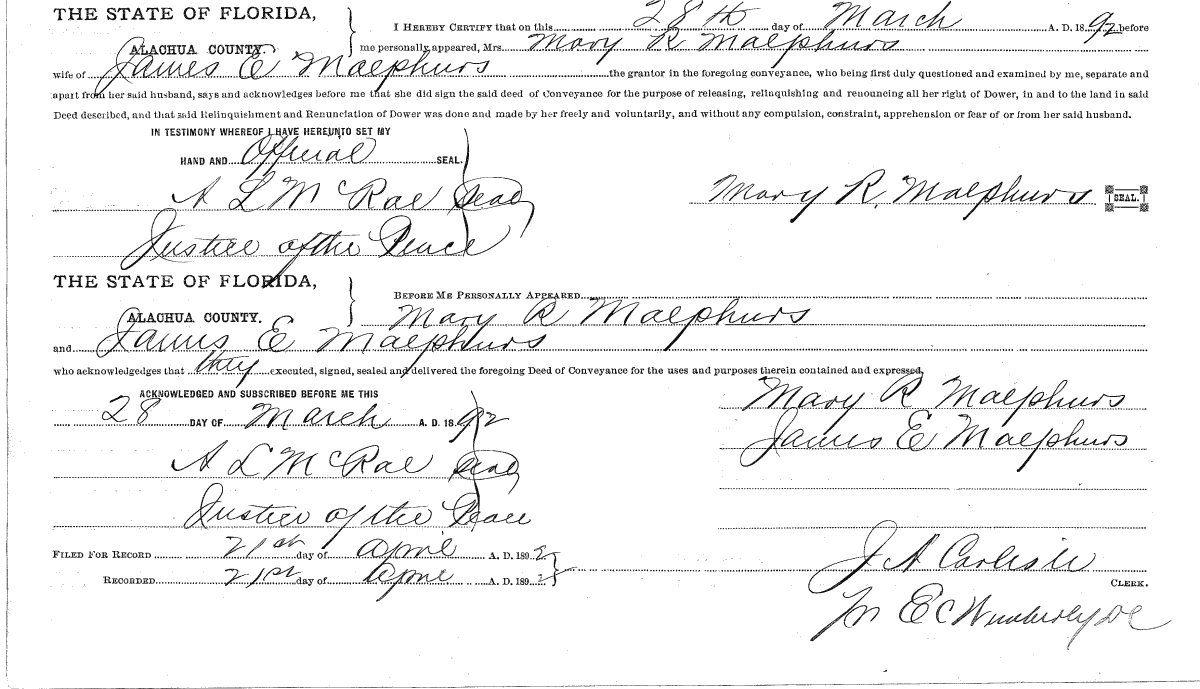 THE STATE OF FLORIDA,
I HEREBY CERTIFY that on this 28th day of March A. D. 1892 before
ALACHUA COUNTY.
me personally appeared, Mrs. Mary R Maephurs
wife of James E Maephurs the grantor in the foregoing conveyance, who being first duly questioned and examined by me, separate and
apart from her said husband, says and acknowledges before me that she did sign the said deed of Conveyance for the purpose of releasing, relinquishing and renouncing all her right of Dower, in and to the land in said
Deed described, and that said Relinquishment and Renunciation of Dower was done and made by her freely and voluntarily, and without any compulsion, constraint, apprehension or fear of or from her said husband.
IN TESTIMONY WHEREOF I HAVE HEREUNTO SET MY
HAND AND Official SEAL.
A L McRae Seal
Mary R. Maephurs SEAL.
Justice of the Peace
THE STATE OF FLORIDA,
BEFORE ME PERSONALLY APPEARED
ALACHUA COUNTY.
Mary R Maephurs
and James E Maephurs
who acknowledgedges that they executed, signed, sealed and delivered the foregoing Deed of Conveyance for the uses and purposes therein contained and expressed,
ACKNOWLEDGED AND SUBSCRIBED BEFORE ME THIS
28 DAY OF March A. D. 1892
Mary R Maephurs
James E Maephurs
A L McRae Seal
Justice of the Peace
FILED FOR RECORD 21st day of April A. D. 1892
RECORDED 21st day of April A. D. 1892
J A Carlisle
CLERK.
E C Wimberly DC